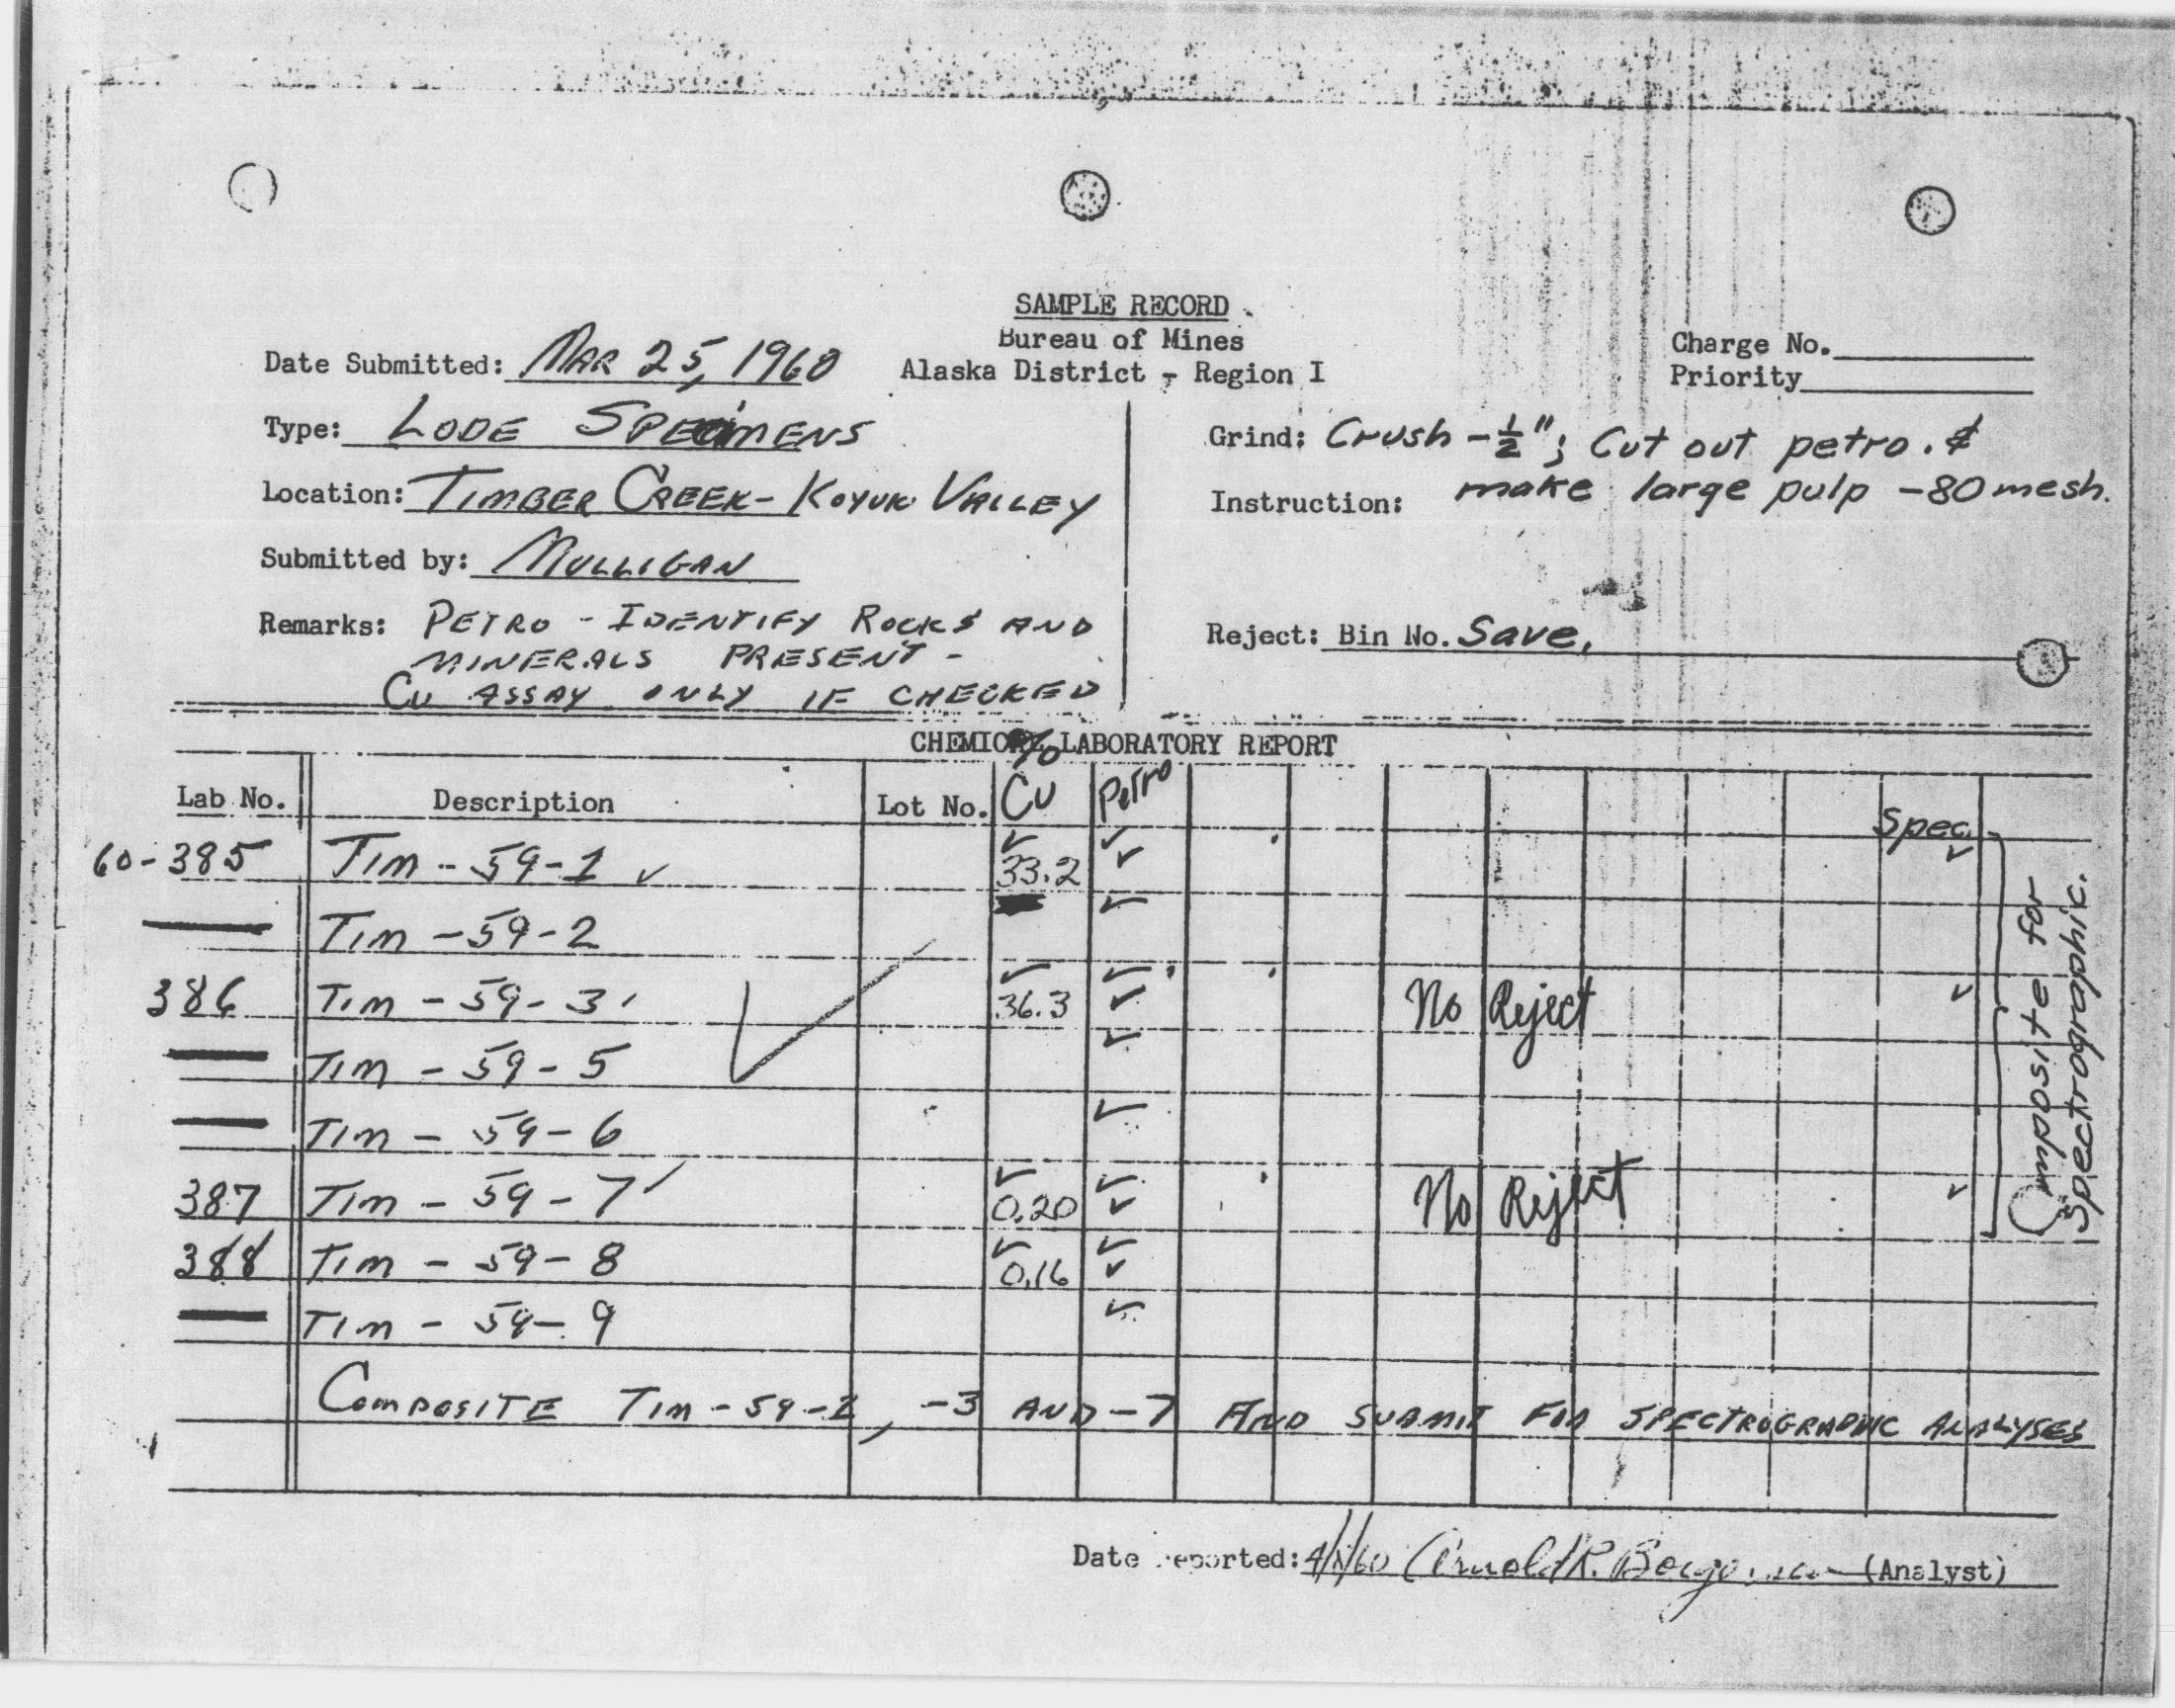 SAMPLE RECORD
Bureau of Mines
Alaska District - Region I
Charge No.
Priority
Date Submitted: MAR 25, 1960
Type: LODE SPECIMENS
Location: TIMBER CREEK - KOYUK VALLEY
Submitted by: MULLIGAN
Remarks: PETRO - IDENTIFY ROCKS AND
MINERALS PRESENT -
CU ASSAY ONLY IF CHECKED
Grind: Crush -½"; Cut out petro. &
Instruction: make large pulp -80 mesh.
Reject: Bin No. Save.
CHEMICAL LABORATORY REPORT
Lab No. Description Lot No. % Cu Petro Spec.
60-385 TIM - 59-1 ✓ ✓ 33.2 ✓ ✓ ✓
— TIM - 59-2 ✓
386 TIM - 59-3 ✓ 36.3 ✓ ✓ No Reject ✓
— TIM - 59-5 ✓
— TIM - 59-6 ✓
387 TIM - 59-7 ✓ ✓ 0.20 ✓ ✓ No Reject ✓
388 TIM - 59-8 ✓ 0.16 ✓ ✓
— TIM - 59-9 ✓
Composite for
Spectrographic.
COMPOSITE TIM-59-1, -3 AND -7 AND SUBMIT FOR SPECTROGRAPHIC ANALYSES
Date reported: Arnold R. (Analyst)